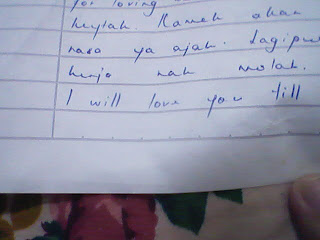 for loving
heylah. Rameh ahan
naso ya ajah. Sagipu
hinjo nah molah.
I will love you till